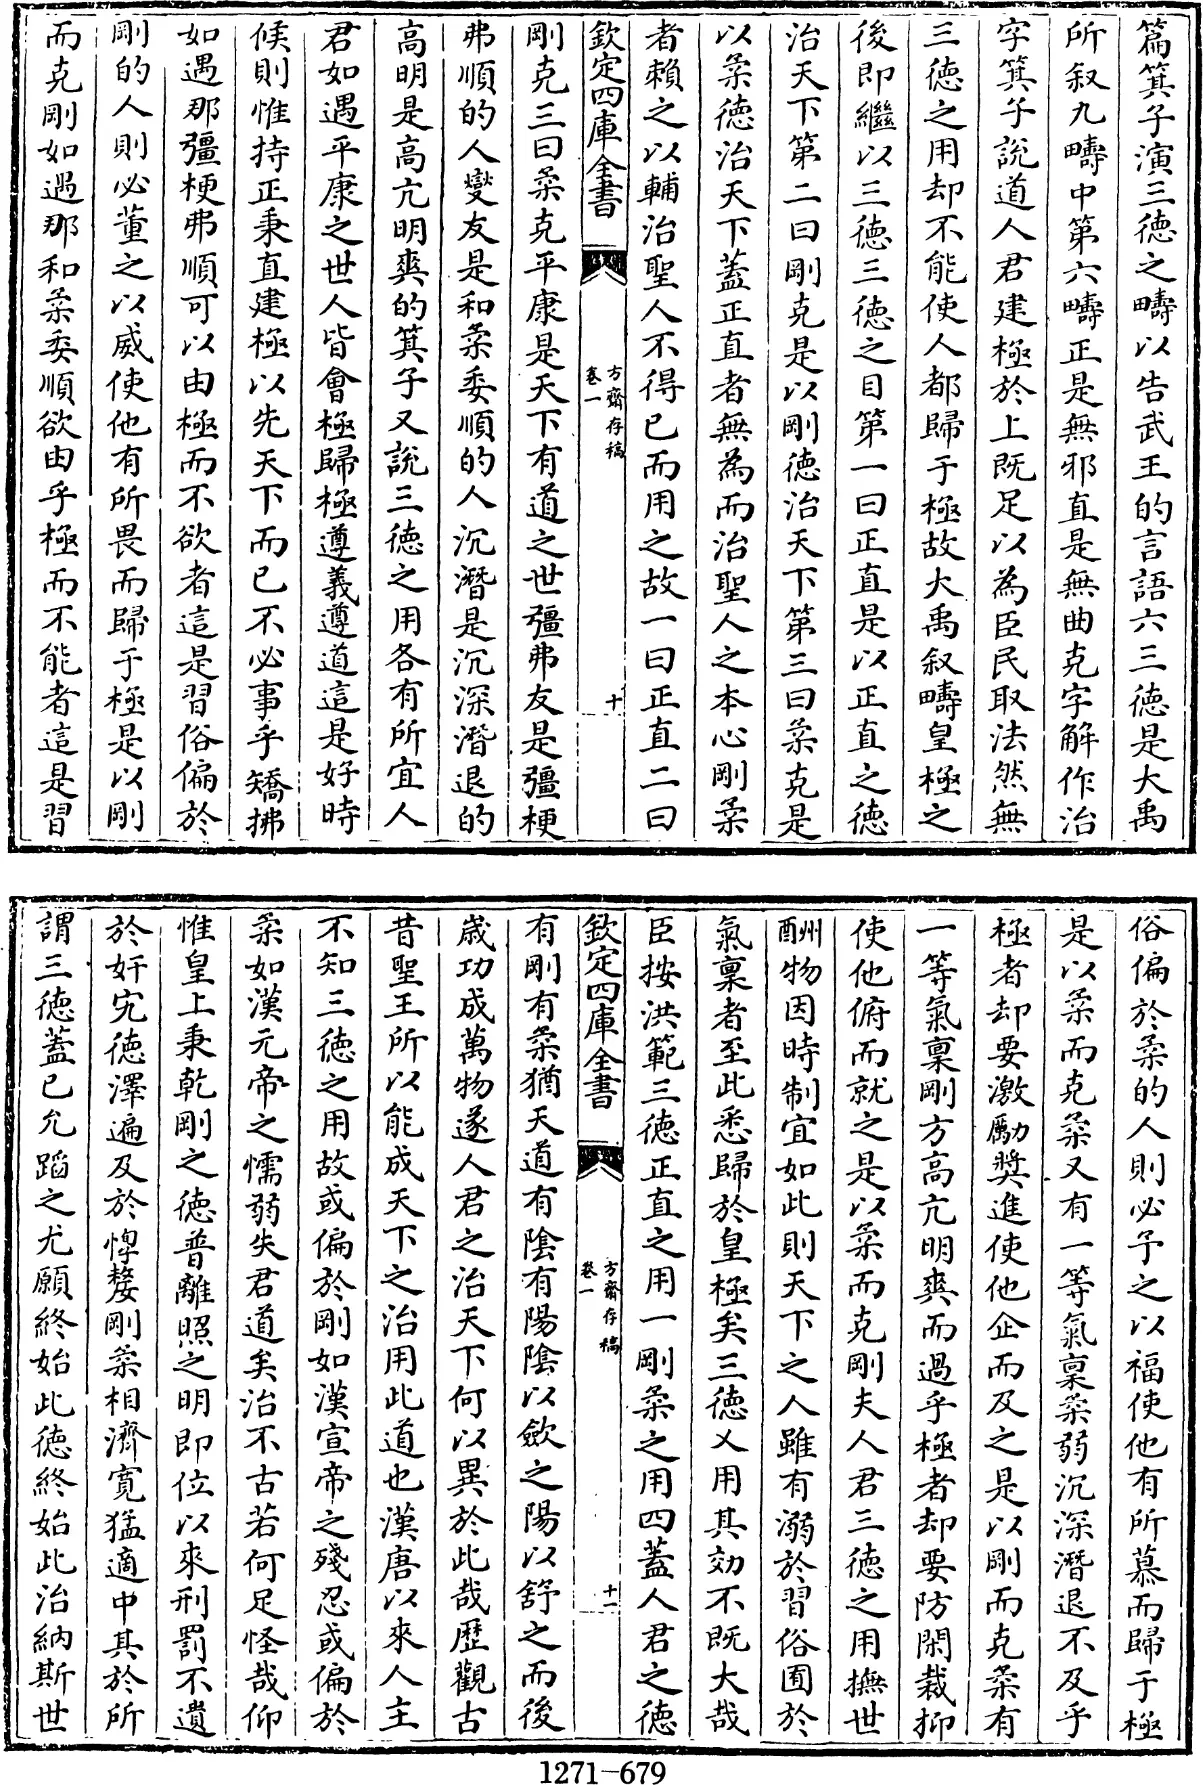 篇箕子演三徳之疇以告武王的言語六三徳是大禹
所叙九疇中第六疇正是無邪直是無曲克字解作治
字箕子說道人君建極於上既足以為臣民取法然無
三徳之用却不能使人都歸于極故大禹叙疇皇極之
後即繼以三徳三徳之目第一曰正直是以正直之徳
治天下第二曰剛克是以剛徳治天下第三曰柔克是
以柔徳治天下蓋正直者無為而治聖人之本心剛柔
者賴之以輔治聖人不得已而用之故一曰正直二曰
欽定四庫全書
方齋存稿
卷一
十
剛克三曰柔克平康是天下有道之世彊弗友是彊梗
弗順的人燮友是和柔委順的人沉潛是沉深潛退的
高明是高亢明爽的箕子又說三徳之用各有所宜人
君如遇平康之世人皆會極歸極遵義遵道這是好時
候則惟持正秉直建極以先天下而已不必事乎矯拂
如遇那彊梗弗順可以由極而不欲者這是習俗偏於
剛的人則必董之以威使他有所畏而歸于極是以剛
而克剛如遇那和柔委順欲由乎極而不能者這是習
俗偏於柔的人則必予之以福使他有所慕而歸于極
是以柔而克柔又有一等氣稟柔弱沉深潛退不及乎
極者却要激勵奬進使他企而及之是以剛而克柔有
一等氣稟剛方高亢明爽而過乎極者却要防閑裁抑
使他俯而就之是以柔而克剛夫人君三徳之用撫世
酬物因時制宜如此則天下之人雖有溺於習俗囿於
氣稟者至此悉歸於皇極矣三徳乂用其効不既大哉
臣按洪範三徳正直之用一剛柔之用四蓋人君之徳
欽定四庫全書
方齋存稿
卷一
十一
有剛有柔猶天道有陰有陽陰以歛之陽以舒之而後
歳功成萬物遂人君之治天下何以異於此哉歷觀古
昔聖王所以能成天下之治用此道也漢唐以來人主
不知三徳之用故或偏於剛如漢宣帝之殘忍或偏於
柔如漢元帝之懦弱失君道矣治不古若何足怪哉仰
惟皇上秉乾剛之徳普離照之明即位以來刑罰不遺
於奸宄徳澤遍及於惸嫠剛柔相濟寛猛適中其於所
謂三徳蓋已允蹈之尤願終始此徳終始此治納斯世
1271-679